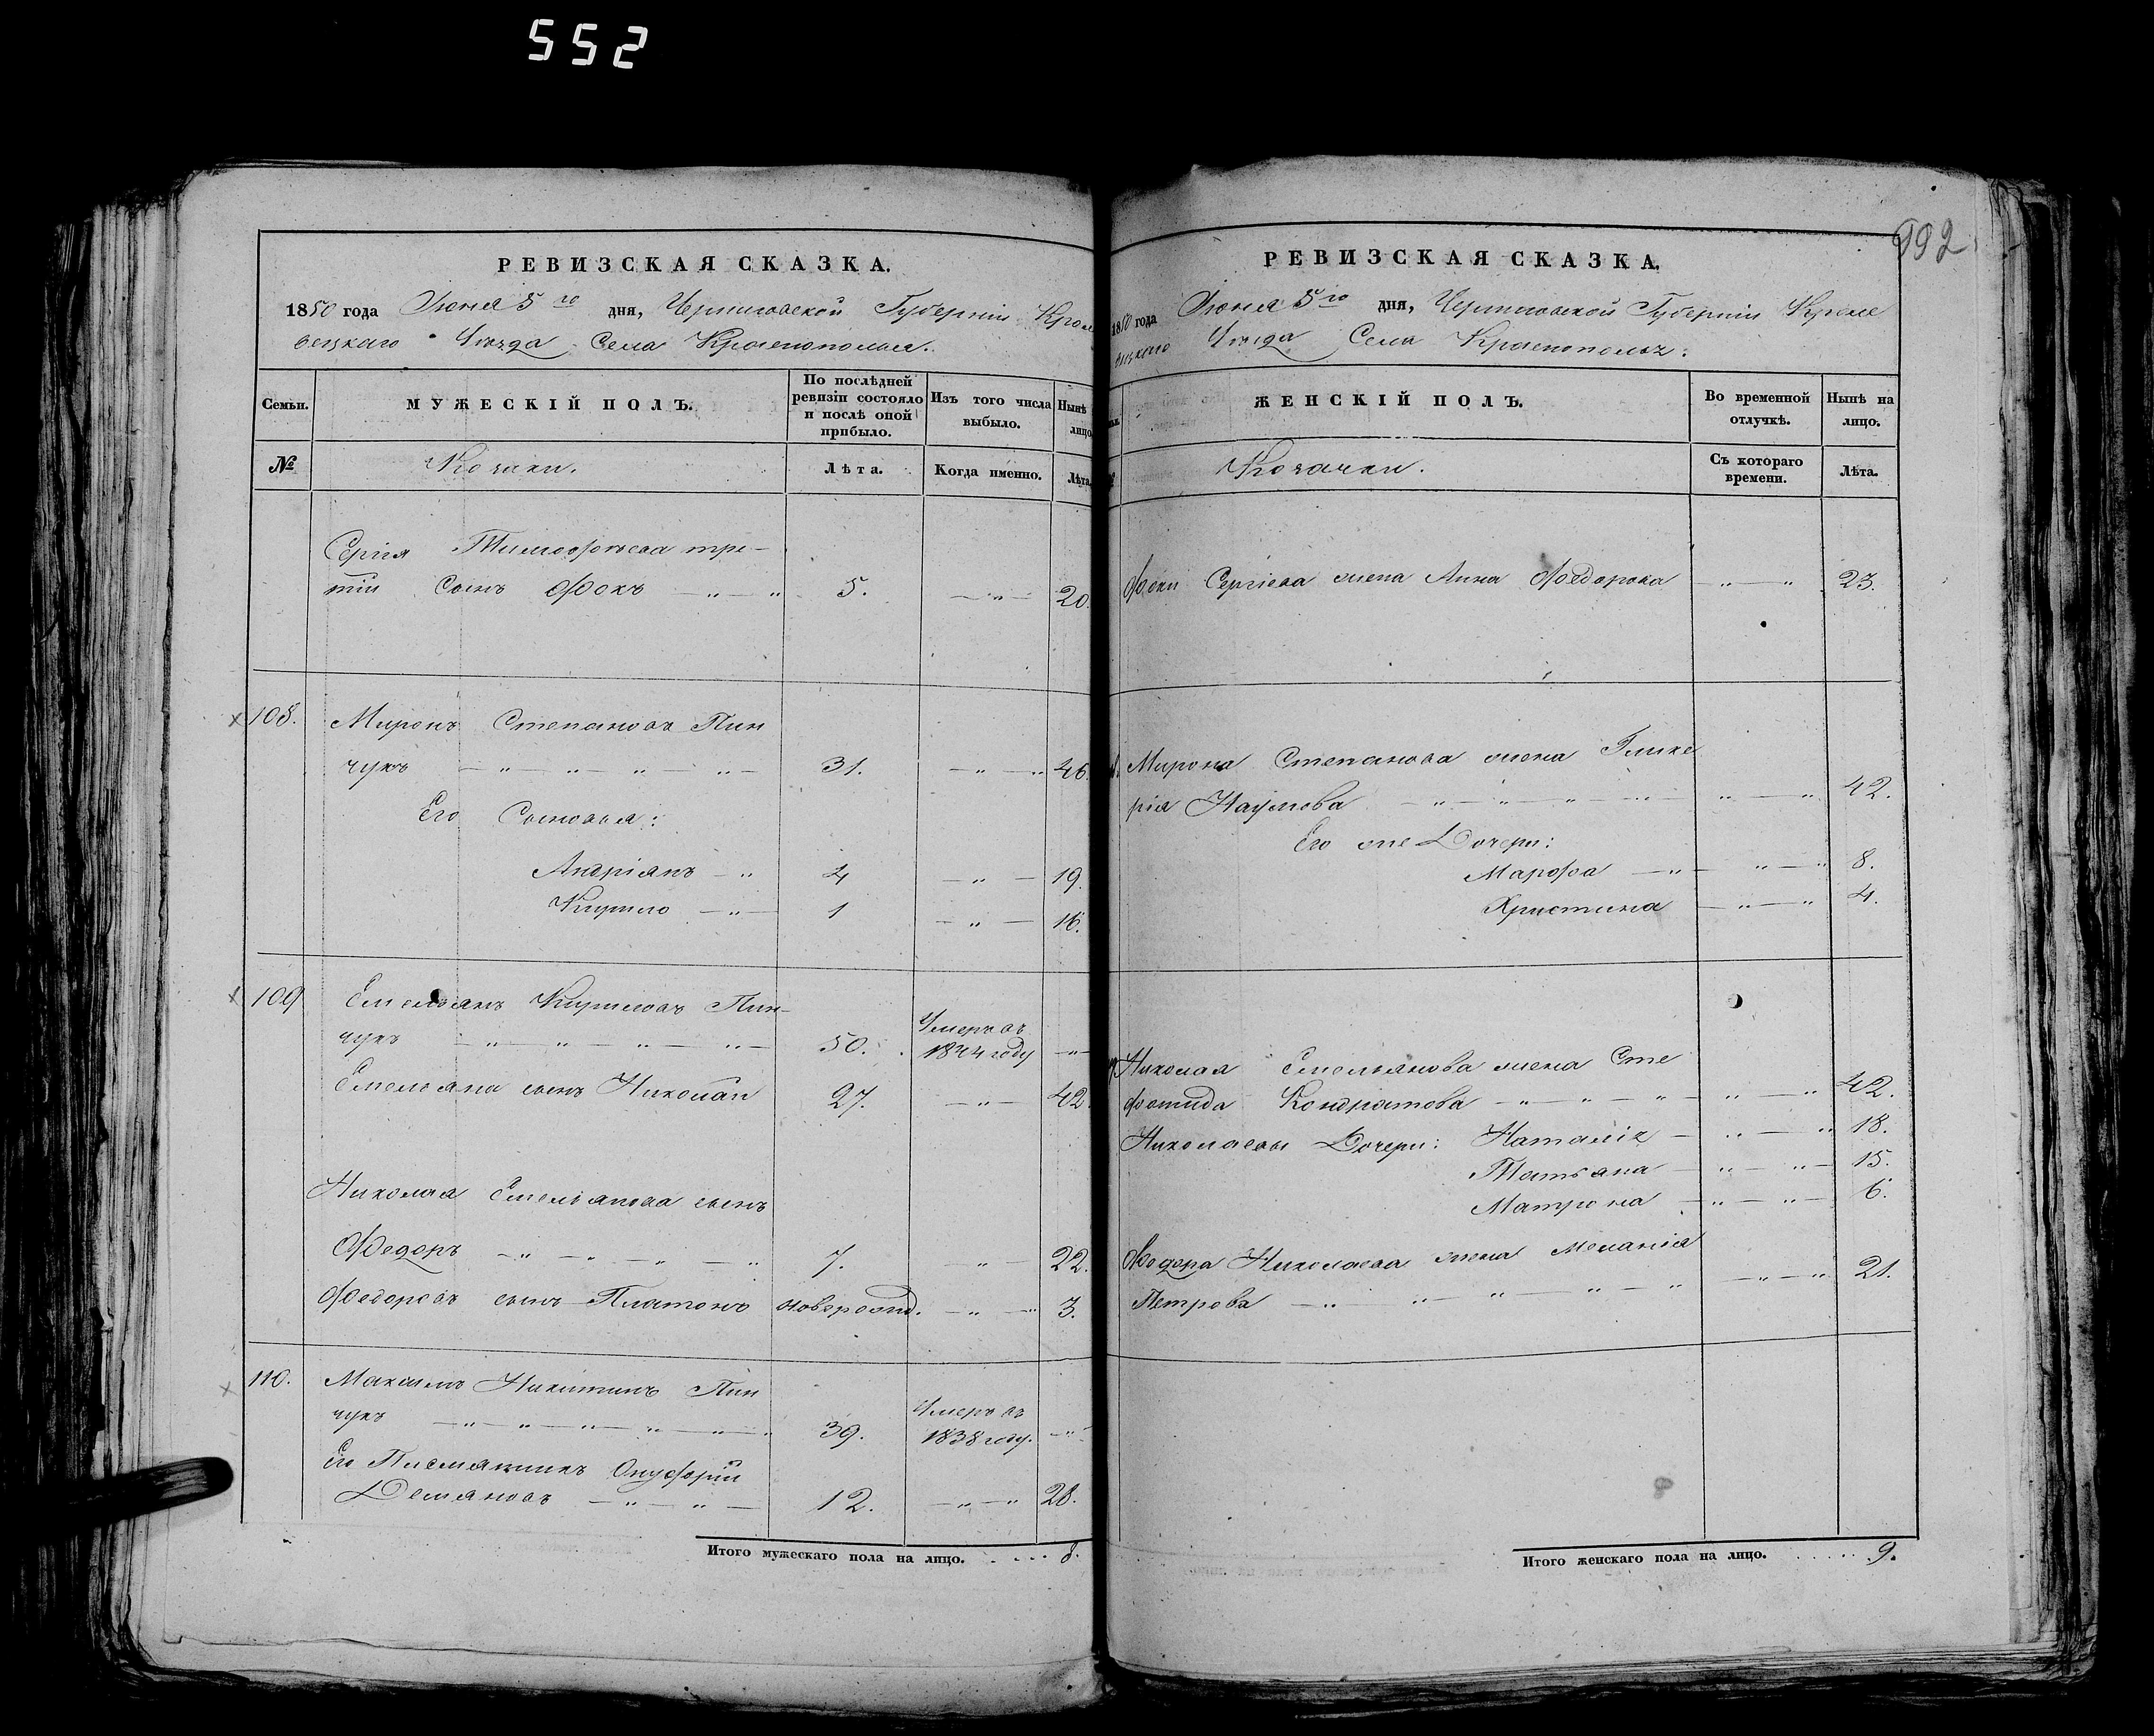 552
992
РЕВИЗСКАЯ СКАЗКА.
1850 года Іюня 5го дня, Черниговской Губерніи Кроле
вецкаго Уѣзда Села Краснополья.
Семьи. МУЖЕСКІЙ ПОЛЪ. По послѣдней ревизіи состояло и послѣ оной прибыло. Изъ того числа выбыло. Нынѣ лицо.
№ Козаки. Лѣта. Когда именно. Лѣта.
Сергія Тимофѣева тре-
тій Сынъ Фокъ 5. 20.
108. Миронъ Степановъ Пин
чукъ 31. 46.
Его Сыновья:
Андріянъ 4 19.
Кирило 1 16.
109 Емельянъ Кириловъ Пин-
чукъ 50. Умеръ въ 1844 году
Емельяна сынъ Николай 27. 42.
Николая Емельянова сынъ
Федоръ 7. 22.
Федоровъ сынъ Платонъ новорожд. 3.
110. Максимъ Никитинъ Пин
чукъ 39. Умеръ въ 1838 году.
Его Племянникъ Онуфрій
Демяновъ 12. 28.
Итого мужескаго пола на лицо. 8.
РЕВИЗСКАЯ СКАЗКА.
1850 года Іюня 5го дня, Черниговской Губерніи Кроле
вецкаго Уѣзда Села Краснополья.
ЖЕНСКІЙ ПОЛЪ. Во временной отлучкѣ. Нынѣ на лицо.
Козачки. Съ котораго времени. Лѣта.
Фоки Сергіева жена Анна Федорова 23.
Мирона Степанова жена Глике
рія Наумова 42.
Его же Дочери:
Марфа 8.
Христина 4.
Николая Емельянова жена Сте
фанида Кондратова 42.
Николаевы Дочери: Наталія 18.
Татьяна 15.
Матрона 6.
Федора Николаева жена Меланія
Петрова 21.
Итого женскаго пола на лицо. 9.